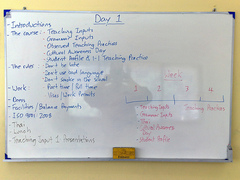 Day 1
- Introductions
- The course:- Teaching Inputs
- Grammar Inputs
- Observed Teaching Practice
- Cultural Awareness Day
- Student Profile & 1-1 Teaching Practice
- The rules Don't be late
Don't use bad language
Don't
- Work: Part time / Full time
Visas / Work Permits
-
- Facilities / Balance Payments
- ISO 9001:2008
-
- Lunch
- Teaching Input 1 Presentations
1 2 3 4
Teaching Inputs
Grammar Inputs
Cultural Awareness
Day
Student Profile
Teaching Practice